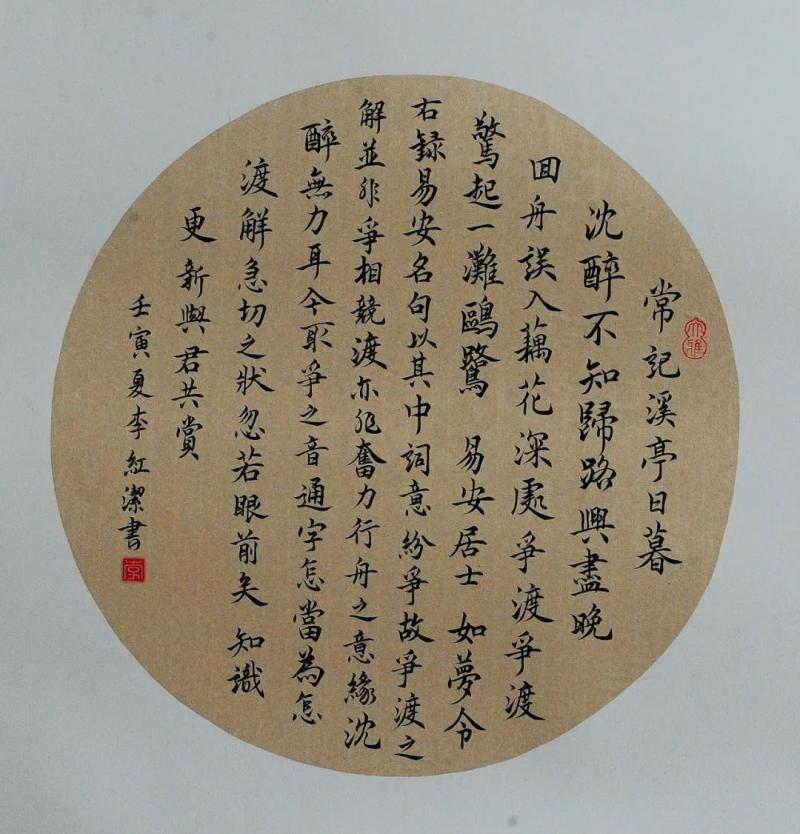 常記溪亭日暮
沈醉不知歸路興盡晚
回舟誤入藕花深處爭渡爭渡
驚起一灘鷗鷺 易安居士 如夢令
右録易安名句以其中詞意紛爭故爭渡之
解並非爭相競渡亦非奮力行舟之意緣沈
醉無力耳今取爭之音通字怎當為怎
渡解急切之狀忽若眼前矣 知識
更新與君共賞
壬寅夏李紅潔書